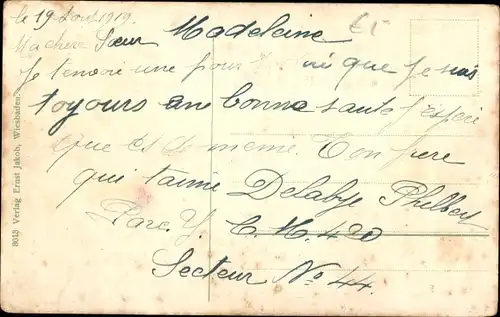 le 19 Aout 1919.
Madeleine
Ma chere Sœur
Je t'envoi une pour que je suis
toujours en bonne sante j'espère
que de meme. Ton frere
qui t'aime Delabye
Parc. Y. C.M. 420
Secteur No 44.
8013 Verlag Ernst Jakob, Wiesbaden.